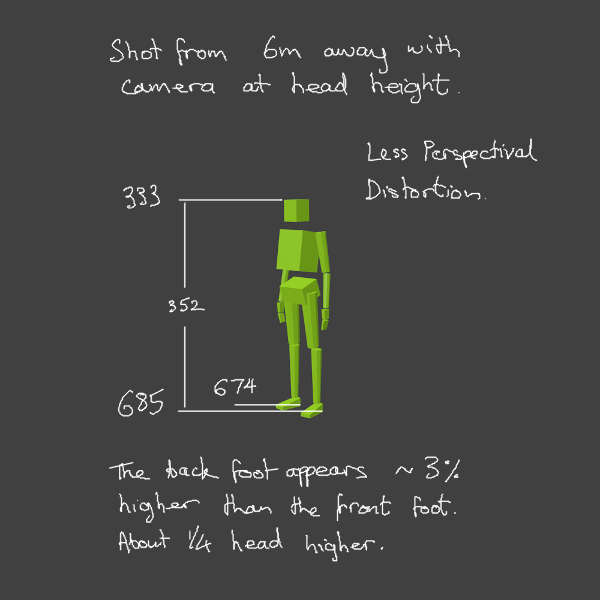 Shot from 6m away with
camera at head height.
Less Perspectival
Distortion.
333
352
674
685
The back foot appears ~ 3%
higher than the front foot.
About 1/4 head higher.